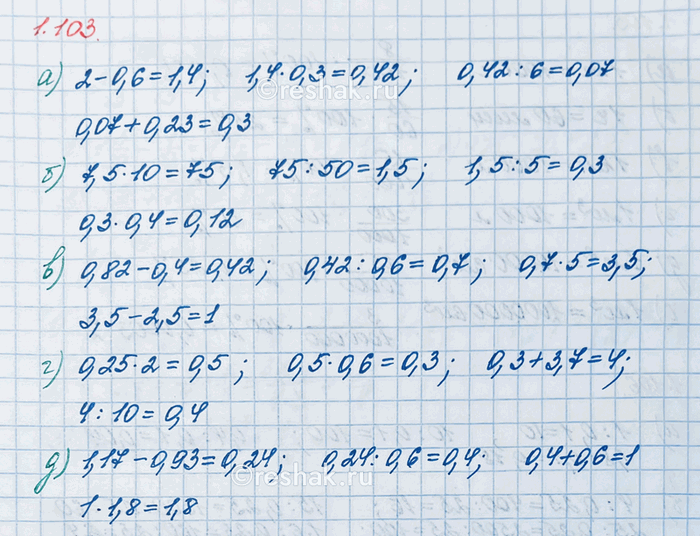 1.103.
а) 2-0,6=1,4; 1,4·0,3=0,42; 0,42:6=0,07
©reshak.ru
0,07+0,23=0,3
б) 7,5·10=75; 75:50=1,5; 1,5:5=0,3
0,3·0,4=0,12
в) 0,82-0,4=0,42; 0,42:0,6=0,7; 0,7·5=3,5;
3,5-2,5=1
г) 0,25·2=0,5; 0,5·0,6=0,3; 0,3+3,7=4;
4:10=0,4
д) 1,17-0,93=0,24; 0,24:0,6=0,4; 0,4+0,6=1
©reshak.ru
1·1,8=1,8